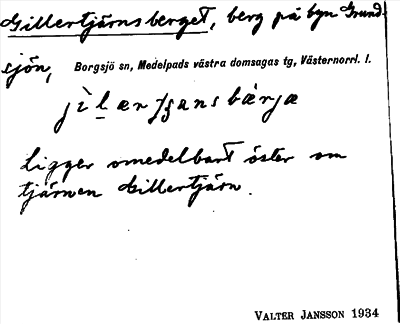 Gillertjärnsberget, berg på byn Grund-
sjön,
Borgsjö sn, Medelpads västra domsagas tg, Västernorrl. l.
Ligger omedelbart öster om
tjärnen Gillertjärn.
VALTER JANSSON 1934